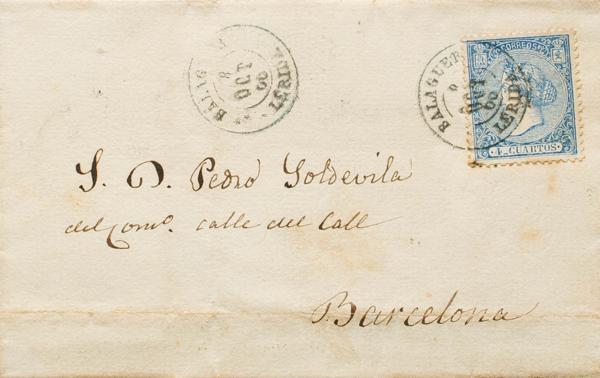 BALAGUER
8
OCT
66
LERIDA
BALAGUER
OCT
66
LERIDA
CORREOS
4 CUARTOS
S. D. Pedro Soldevila
del Comº. calle del Call
Barcelona